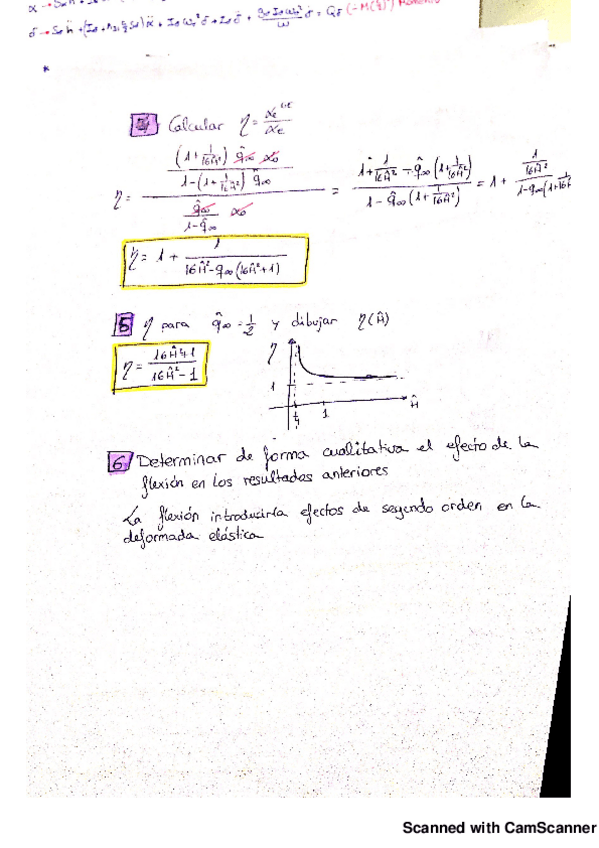 *
4 Calcular η = αe^GE / αe
η = ((1 + 1/16Ĥ²) q̂∞ α₀ / (1 - (1 + 1/16Ĥ²) q̂∞)) / (q̂∞ α₀ / (1 - q̂∞)) = (1 + 1/16Ĥ² - q̂∞ (1 + 1/16Ĥ²)) / (1 - q̂∞ (1 + 1/16Ĥ²)) = 1 + (1/16Ĥ²) / (1 - q∞ (1 + 1/16Ĥ
η = 1 + 1 / (16Ĥ² - q∞ (16Ĥ² + 1))
5 η para q̂∞ = 1/2 y dibujar η(Ĥ)
η = (16Ĥ + 1) / (16Ĥ² - 1)
η
1
1/4 1 Ĥ
6 Determinar de forma cualitativa el efecto de la
flexión en los resultados anteriores
La flexión introduciría efectos de segundo orden en la
deformada elástica
Scanned with CamScanner